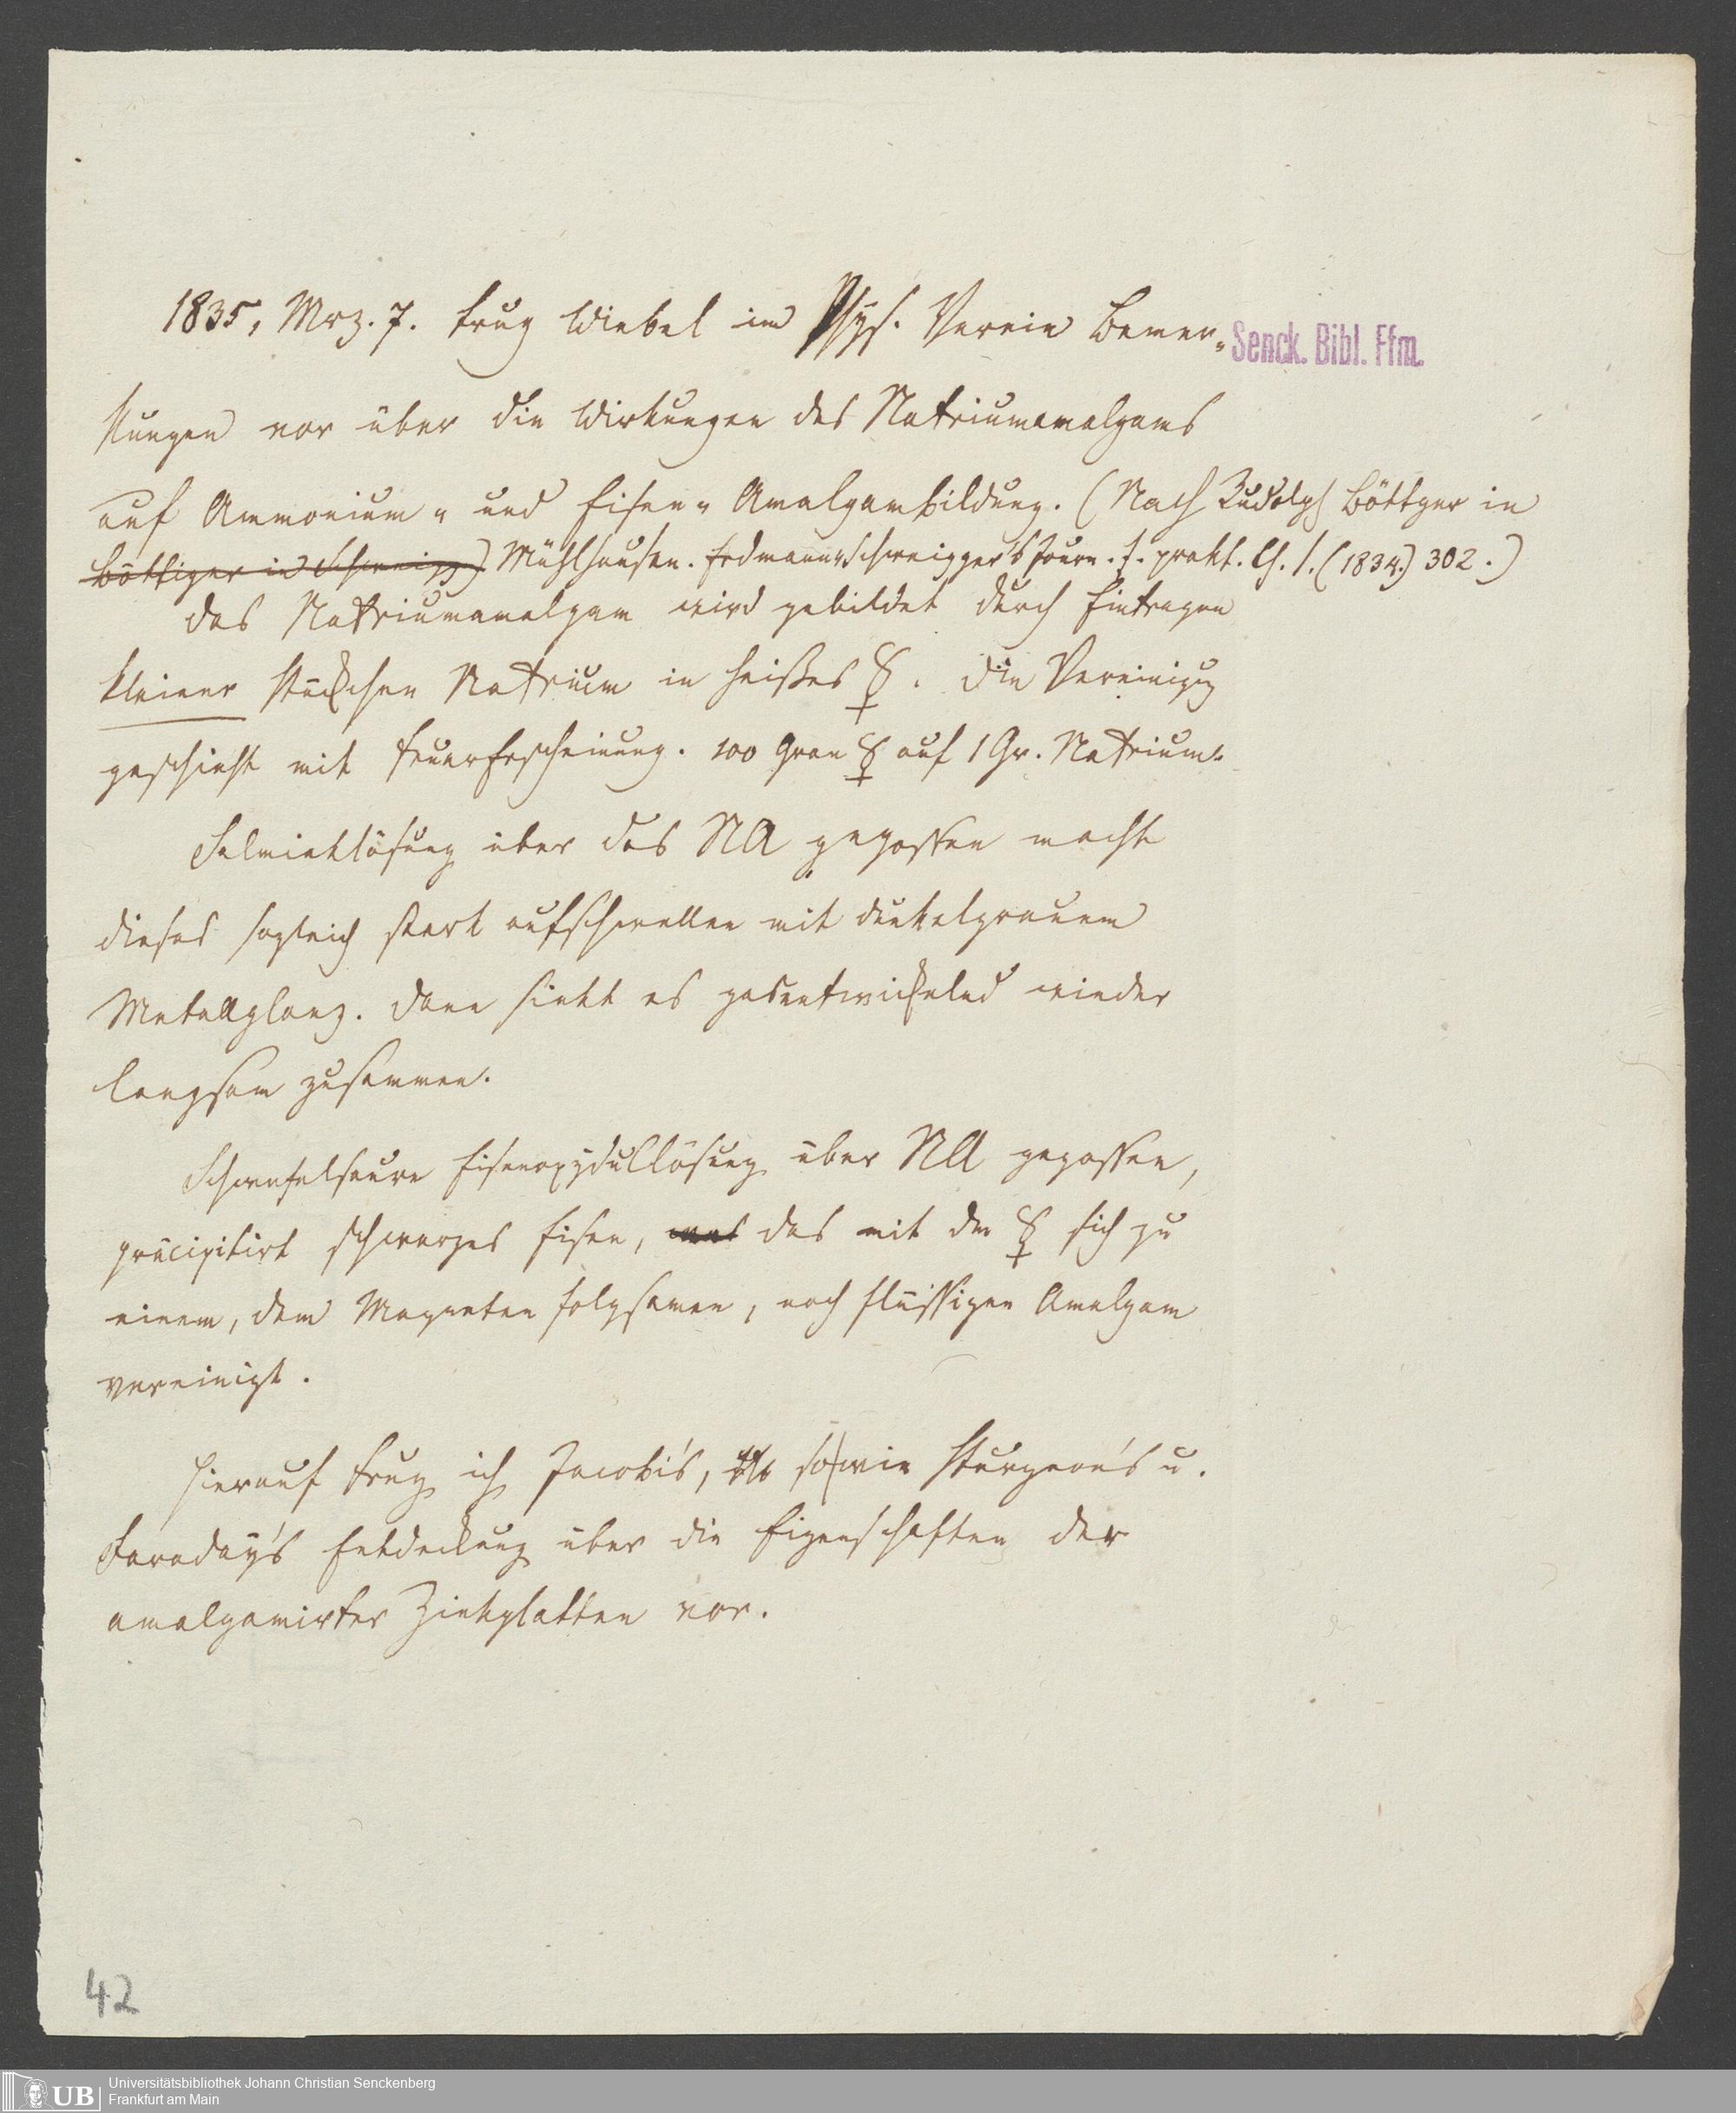 1835, Mrz. 7. trug Wiebel im Phys. Verein Bemer-
Senck. Bibl. Ffm.
kungen vor über die Wirkungen des Natriumamalgams
auf Ammonium- und Eisen- Amalgambildung. (Nach Rudolph Böttger in
Böttiger in Schweigg) Mühlhausen. Erdmann u Schweigger's Journ. f. prakt. Ch. 1. (1834.) 302.)
Das Natriumamalgam wird gebildet durch Eintragen
kleiner Stückchen Natrium in heißes ☿. Die Vereinigug
geschieht mit Feuererscheinung. 100 Gran ☿ auf 1 Gr. Natrium.
Salmiaklösung über das NA gegossen macht
dieses sogleich stark aufschwellen mit dunkelgrauem
Metallglanz. Dann sinkt es gasentwickelnd wieder
langsam zusammen.
Schwefelsaure Eisenoxydullösung über NA gegossen,
präcipitirt schwarzes Eisen, was das mit dem ☿ sich zu
einem, dem Magneten folgsamen, noch flüssigen Amalgam
vereinigt.
Hierauf trug ich Jacobi's, sowie Sturgeon's u.
Faraday's Entdeckung über die Eigenschaften der
amalgamirter Zinkplatten vor.
42
UB
Universitätsbibliothek Johann Christian Senckenberg
Frankfurt am Main